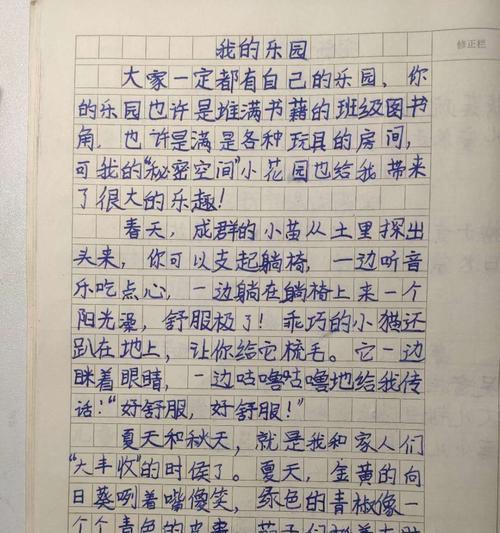 修正栏
我的乐园
大家一定都有自己的乐园，你
的乐园也许是堆满书籍的班级图书
角，也许是满是各种玩具的房间，
可我的“秘密空间”小花园也给我带来
了很大的乐趣！
春天，成群的小苗从土里探出
头来，你可以支起躺椅，一边听音
乐吃点心，一边躺在躺椅上来一个
阳光澡，舒服极了！乖巧的小猫还
趴在地上，让你给它梳毛。它一边
眯着眼睛，一边咕噜咕噜地给我传
话：“好舒服，好舒服！”
夏天和秋天，就是我和家人们
“大丰收”的时候了。夏天，金黄的向
日葵咧着嘴傻笑，绿色的青椒像
一个个青色的